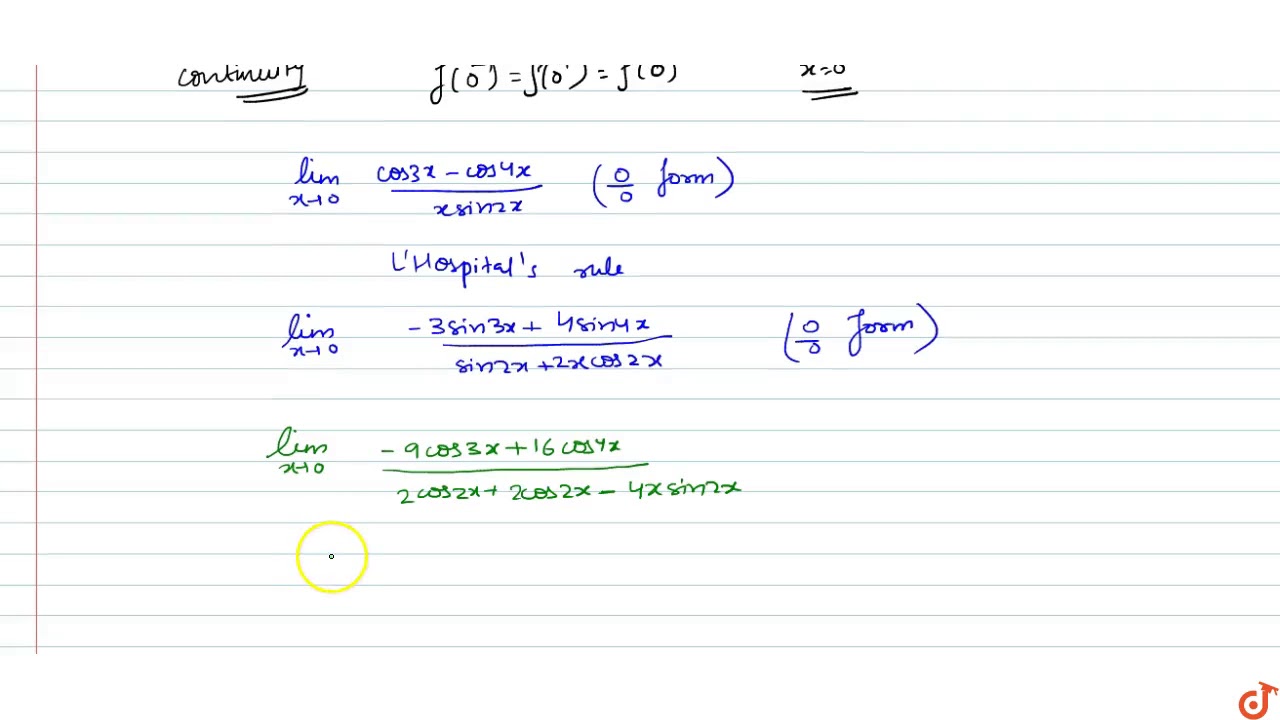 continuity f(0⁻) = f(0⁺) = f(0) x=0
lim x→0 (cos3x − cos4x)/(x sin2x) (0/0 form)
L'Hospital's rule
lim x→0 (−3sin3x + 4sin4x)/(sin2x + 2xcos2x) (0/0 form)
lim x→0 (−9cos3x + 16cos4x)/(2cos2x + 2cos2x − 4xsin2x)